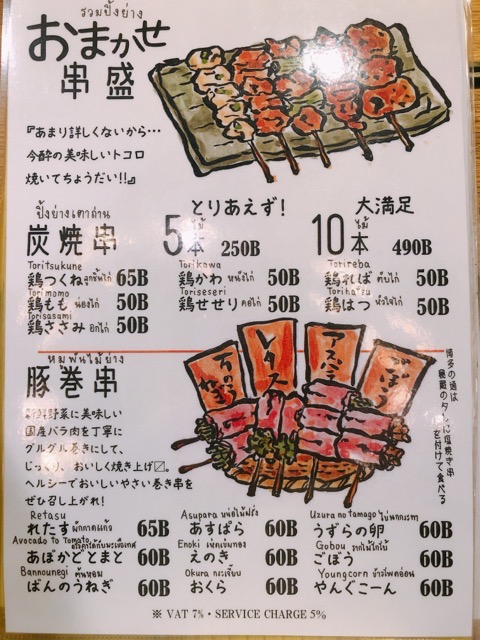 รวมปิ้งย่าง
おまかせ
串盛
『あまり詳しくないから…
今酔の美味しいトコロ
焼いてちょうだい!!』
ปิ้งย่างเตาถ่าน
炭焼串
とりあえず!
5本 ไม้ 250B
大満足
10本 ไม้ 490B
Toritsukune
鶏つくね ลูกชิ้นไก่ 65B
Torikawa
鶏かわ หนังไก่ 50B
Torireba
鶏ればー ตับไก่ 50B
Torimomo
鶏もも น่องไก่ 50B
Toriseseri
鶏せせり คอไก่ 50B
Torihatsu
鶏はつ หัวใจไก่ 50B
Torisasami
鶏ささみ อกไก่ 50B
หมูพันไม้ย่าง
豚巻串
新鮮野菜に美味しい
国産バラ肉を丁寧に
グルグル巻きにして、
じっくり、おいしく焼き上げ〼。
ヘルシーでおいしいやさい巻き串を
ぜひ召し上がれ!
万のうねぎ
レタス
アスパラ
ごぼう
博多の通は
を付けて食べる
Retasu
れたす ผักกาดแก้ว 65B
Asupara หน่อไม้ฝรั่ง
あすぱら 60B
Uzura no tamago ไข่นกกระทา
うずらの卵 60B
Avocado to Tomato อโวคาโดกับมะเขือเทศ
あぼかどとまと 60B
Enoki เห็ดเข็มทอง
えのき 60B
Gobou รากไม้โกโบ้
ごぼう 60B
Bannounegi ต้นหอม
ばんのうねぎ 60B
Okura กระเจี๊ยบ
おくら 60B
Youngcorn ข้าวโพดอ่อน
やんぐこーん 60B
※ VAT 7%・SERVICE CHARGE 5%